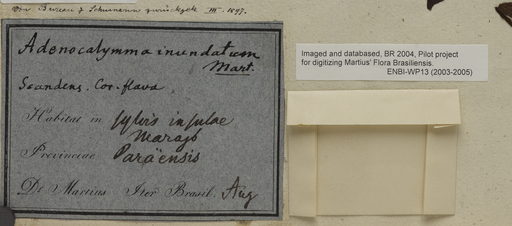 Von Bureau & Schumann zurückgek. III. 1897.
Adenocalymma inundatum
Mart.
Scandens. Cor. flava
Habitat in sylvis insulae
Marajó
Provinciae Paraënsis
Dr Martius Iter Brasil. Aug
Imaged and databased, BR 2004, Pilot project
for digitizing Martius' Flora Brasiliensis.
ENBI-WP13 (2003-2005)